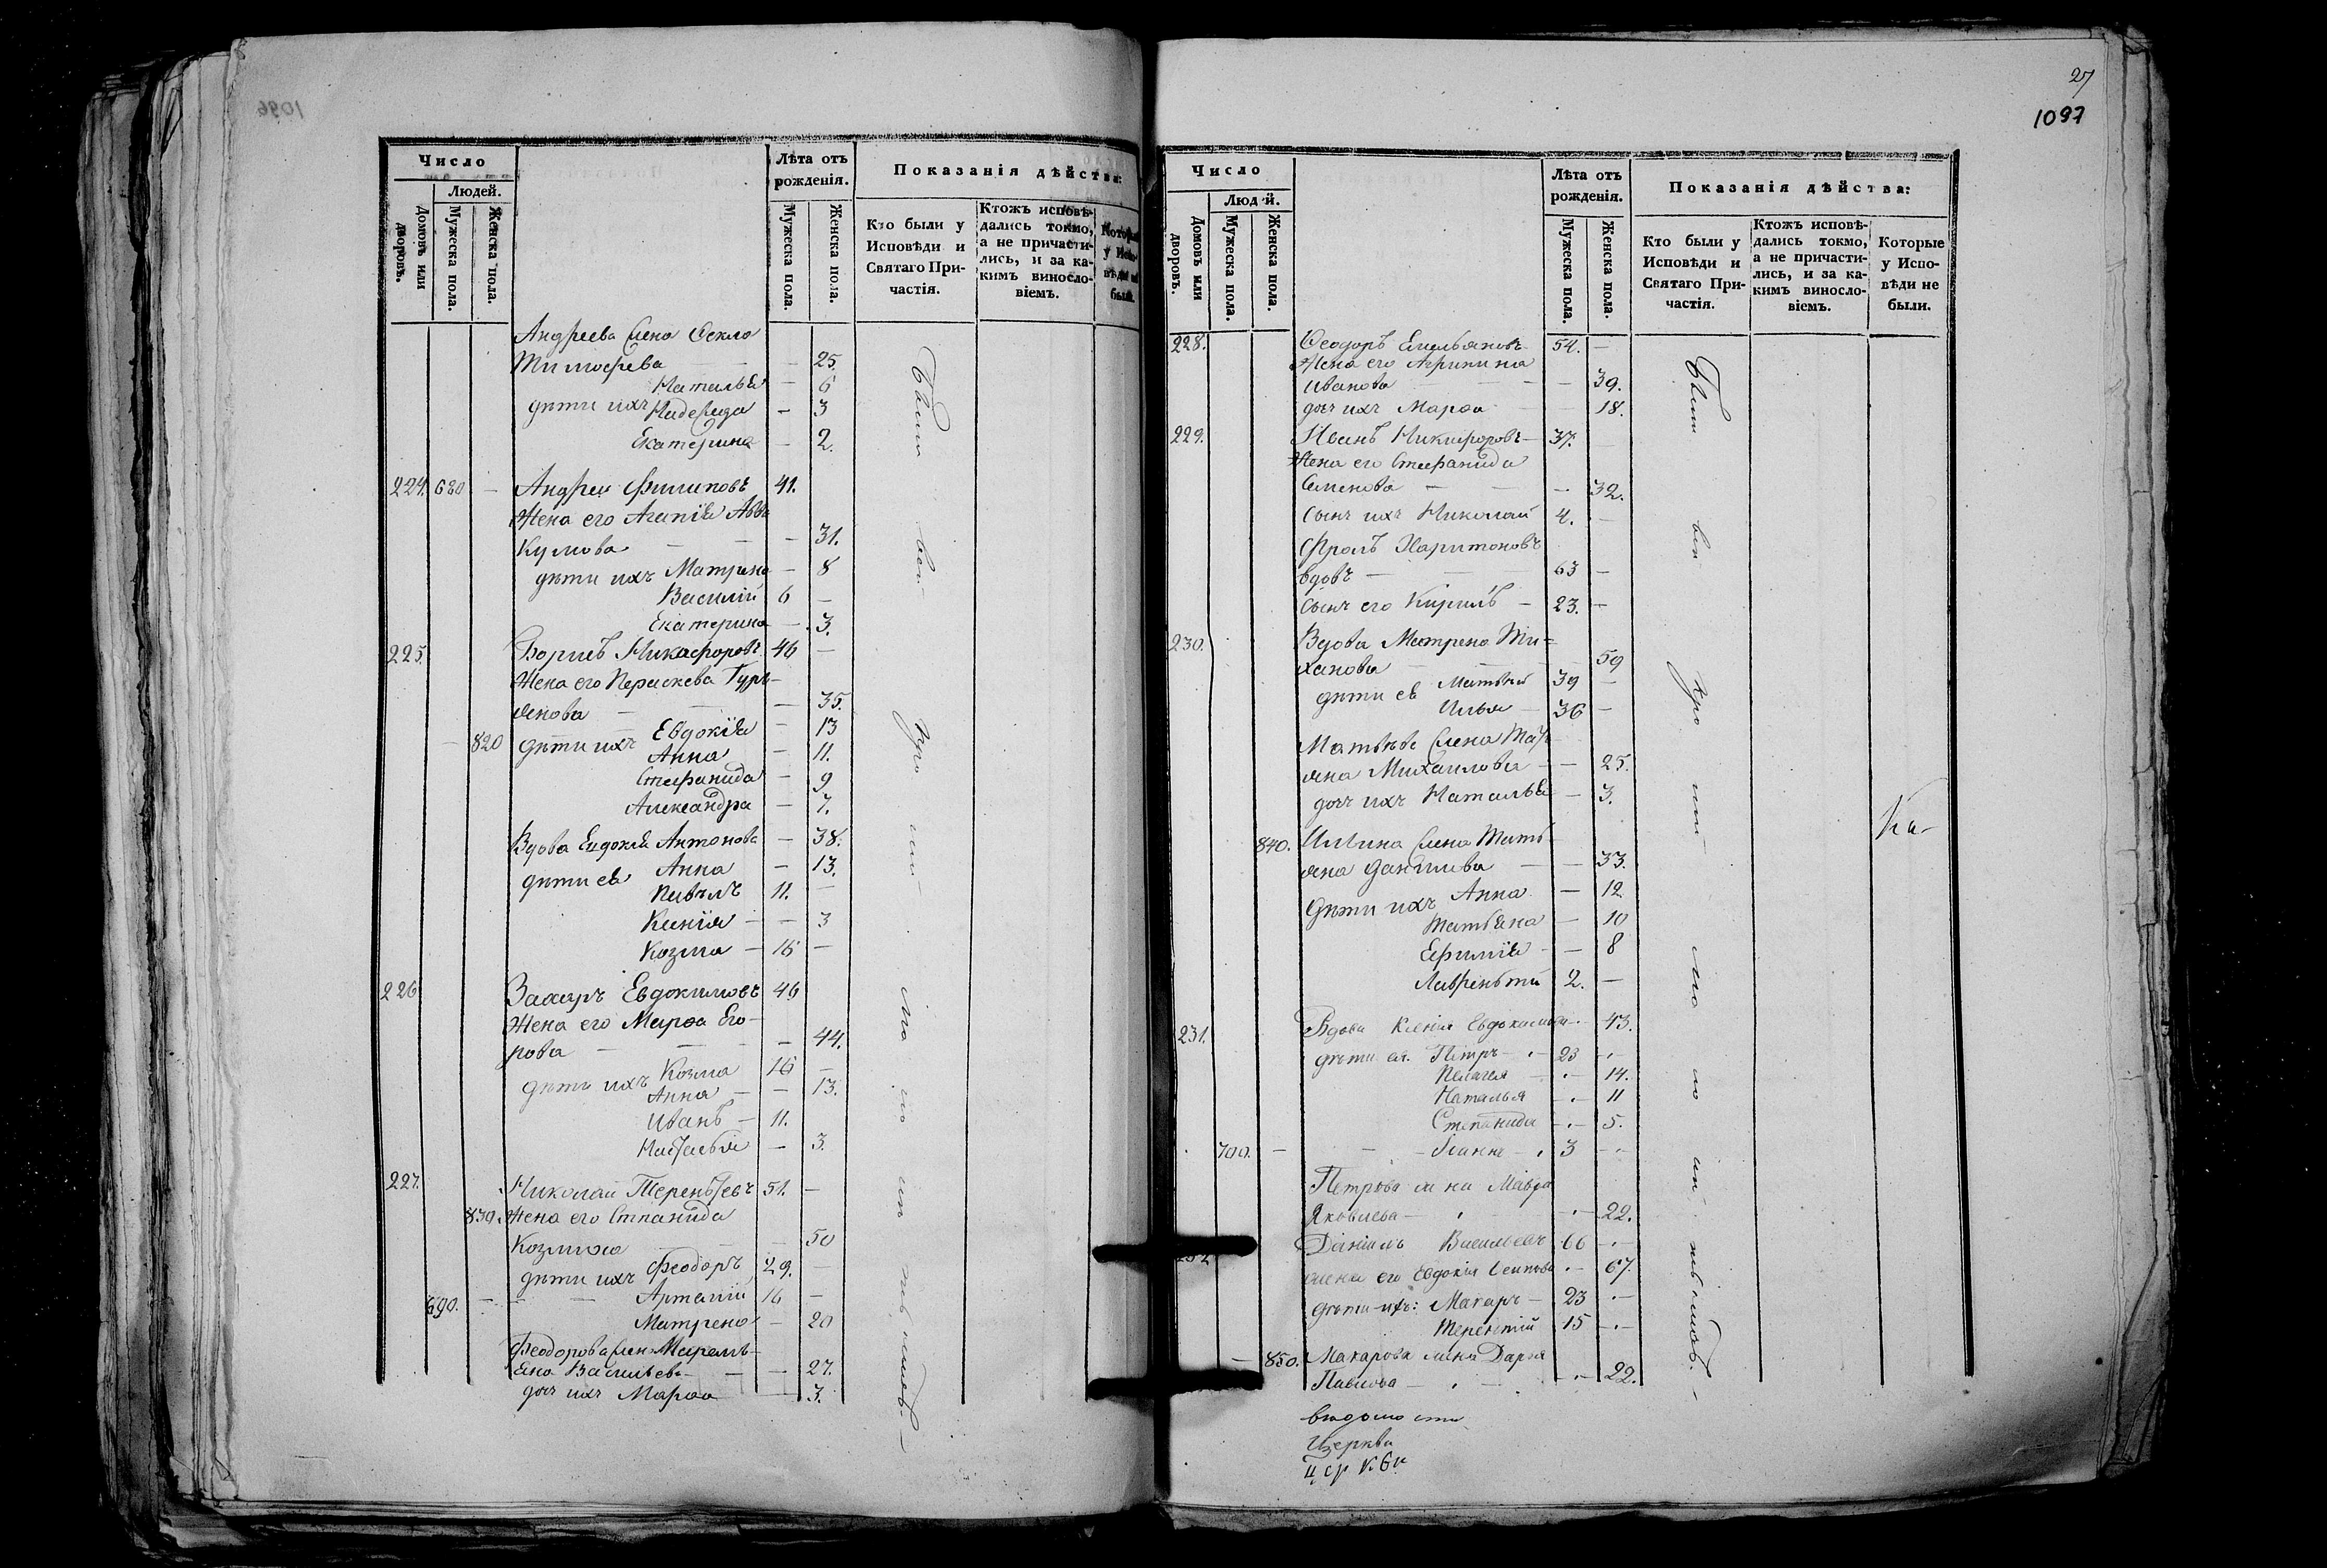 27
1097
Число
Людей.
Домовъ или дворовъ.
Мужеска пола.
Женска пола.
Лѣта отъ рожденія.
Мужеска пола.
Женска пола.
Показанія дѣйства:
Кто были у Исповѣди и Святаго Причастія.
Ктожъ исповѣдались токмо, а не причастились, и за какимъ винословіемъ.
Которые у Исповѣди не были.
Андреева жена Фекла
Тимофѣева — — 25.
Наталья — 6
дѣти ихъ Надежда — 3
Екатерина — 2.
224. 680 — Андрей Филиповъ 41.
Жена его Агапія Авва
кумова — — — 31.
дѣти ихъ Матрена — 8
Василій 6 —
Екатерина — 3.
225. Борисъ Никифоровъ 46 —
Жена его Параскева Гурь-
янова — — — 35.
Евдокія — 13
— 820 дѣти ихъ
Анна — 11.
Стефанида — 9
Александра — 7.
Вдова Евдокія Антонова — 38.
дѣти ея Анна — 13.
Павелъ 11. —
Ксенія — — 3
Козма — 16 —
226 Захаръ Евдокимовъ 46
Жена его Марѳа Его-
рова — — — 44.
дѣти ихъ Козма 16 —
Анна — — 13.
Иванъ — 11.
Наталья — 3.
227. Николай Терентьевъ 51. —
830. Жена его Стпанида
Козмина — 50
дѣти ихъ Феодоръ 29. —
690. — — — 16 —
Матрена — 20
Феодорова жена
Васильева — — 27.
дочь ихъ Марѳа — 3.
Были вси
Число
Домовъ или дворовъ.
Мужеска пола.
Женска пола.
Лѣта отъ рожденія.
Мужеска пола.
Женска пола.
Показанія дѣйства:
Кто были у Исповѣди и Святаго Причастія.
Ктожъ исповѣдались токмо, а не причастились, и за какимъ винословіемъ.
Которые у Исповѣди не были.
228. Ѳеодоръ Емельяновъ 54. —
Жена его Агрипина
Иванова — — 39.
дочь ихъ Марѳа — 18.
229. Иванъ Никифоровъ — 37. —
Жена его Стефанида
Семенова — — — 32.
сынъ ихъ Николай 4. —
Фролъ Харитоновъ
вдовъ — 63 —
сынъ его Кирилъ — 23. —
230. Вдова Матрена Ти-
ханова — 59
дѣти ея Матвей 39 —
Илья — 36 —
Матвѣева жена Тать-
яна Михаилова — — 25.
дочь ихъ Наталья — 3.
840. Ильина жена Тать-
яна Данилива — — 33.
дѣти ихъ Анна — 12.
Татьяна — 10
Ефимія — — 8
Лаврентій 2. —
231. Вдова Ксенія Евдокимова — 43.
дѣти ея: Петръ — 23 —
Пелагея — — 14.
Наталья — 11
Степанида — 5.
700. — — 3 —
Петрова жена Мавра
Яковлева — — 22.
Даніилъ Васильевъ 66 —
жена его Евдокія — 67.
дѣти ихъ: Макаръ — 23 —
Терентій 15 —
— 850. Макарова жена Дарья
Павлова — — 22.
Были вси
Ка-
вѣдомости
Церкви